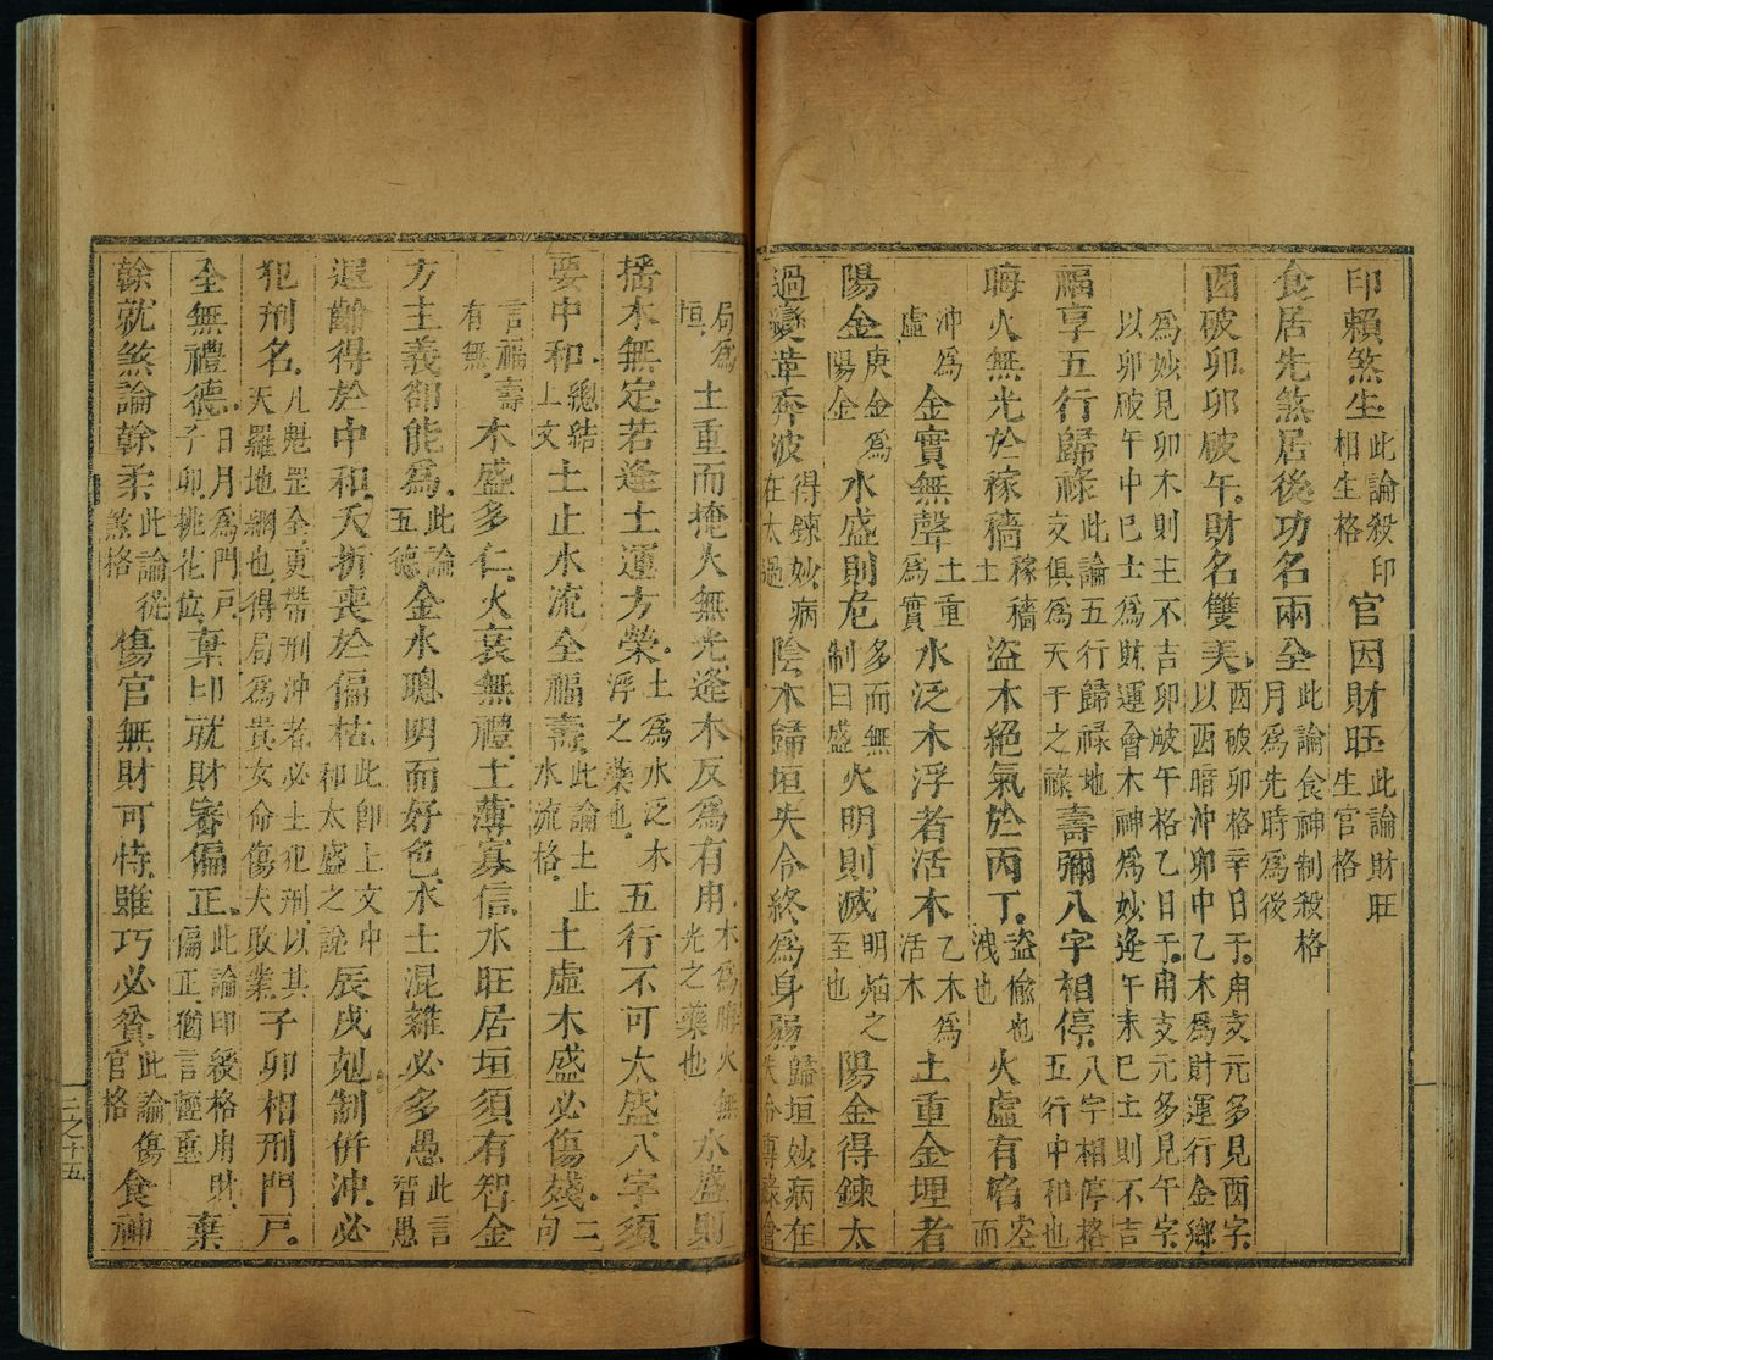 印賴煞生此論殺印相生格官因財旺此論財旺生官格
食居先煞居後功名兩全此論食神制殺格月為先時為後
酉破卯卯破午財名雙美酉破卯格辛日干用支元多見酉字以酉暗沖卯中乙木為財運行金鄉
為妙見卯木則主不吉卯破午格乙日干用支元多見午字以卯破午中巳土為財運會木神為妙逢午未巳土則不吉
福享五行歸祿此論五行歸祿地支俱為天干之祿壽彌八字相停八字相停格五行中和也
晦火無光於稼穡稼穡土盜木絕氣於丙丁盜偷也洩也火虛有焰空而
沖為虛金實無聲土重為實水泛木浮者活木乙木為活木土重金埋者
陽金庚金為陽金水盛則危多而無制曰盛火明則滅明焰之至也陽金得鍊太
過變革奔波得鍊妙病在太過陰木歸垣失令終為身弱歸垣妙病在
局為垣土重而掩火無光逢木反為有用木為晦火無光之藥也水盛則
搖木無定若逢土運方榮土為水泛木浮之藥也五行不可太盛八字須
要中和總結上文土止水流全福壽此論土止水流格土虛木盛必傷殘二句
言福壽有無木盛多仁火衰無禮土薄寡信水旺居垣須有智金
方主義卻能為此論五德金水聰明而好色水土混雜必多愚此言智愚
遐齡得於中和夭折喪於偏枯此卽上文中和太盛之說辰戌剋制併沖必
犯刑名凡魁罡全更帶刑沖者必主犯刑以其天羅地網也得局為貴女命傷夫敗業子卯相刑門戶
全無禮德日月為門戶子卯桃花位棄印就財審偏正此論印綬格用財偏正猶言輕重棄
幹就煞論幹柔此論從煞格傷官無財可恃雖巧必貧此論傷官格食神
三之十五